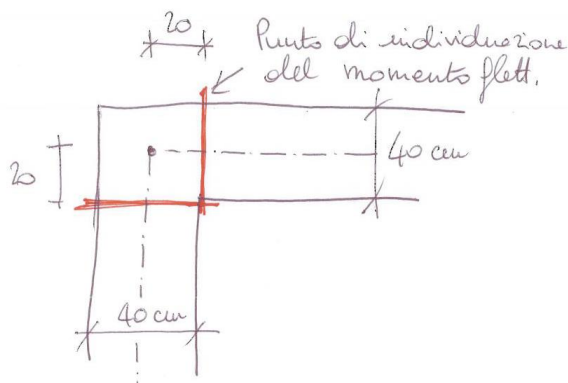 20
Punto di individuazione
del momento flett.
20
40 cm
40 cm